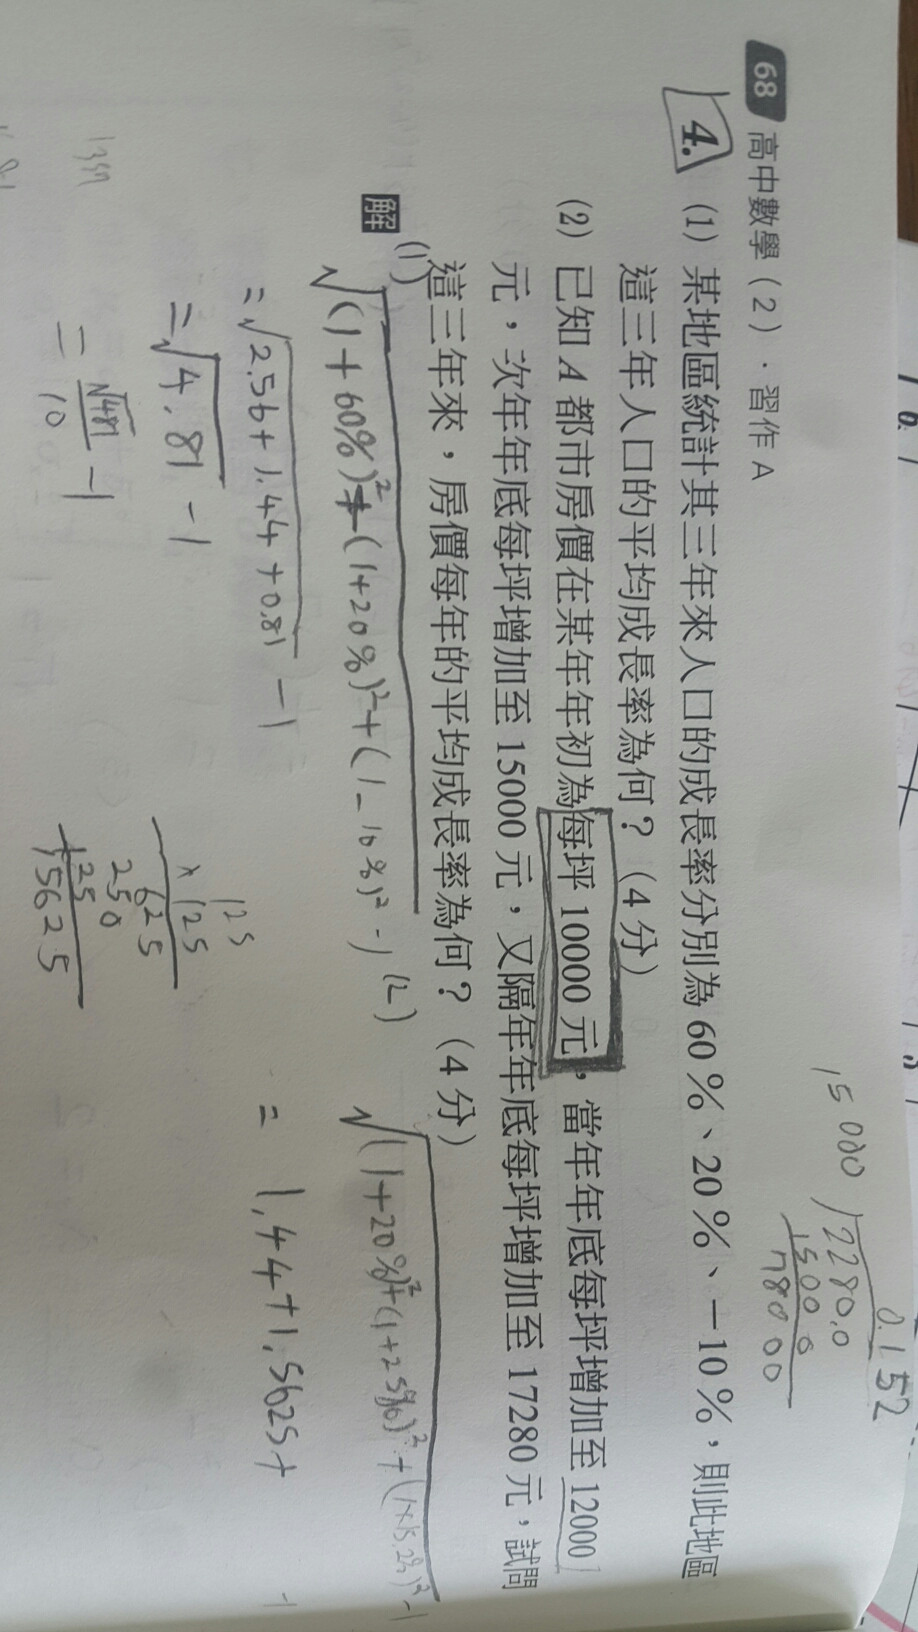 68 高中數學(2)．習作A
4. (1) 某地區統計其三年來人口的成長率分別為60%、20%、-10%，則此地區
這三年人口的平均成長率為何？(4分)
(2) 已知A都市房價在某年年初為每坪10000元，當年年底每坪增加至12000
元，次年年底每坪增加至15000元，又隔年年底每坪增加至17280元，試問
這三年來，房價每年的平均成長率為何？(4分)
解
(1)
√(1+60%)²+(1+20%)²+(1-10%)² -1
=√2.56+1.44+0.81 -1
=√4.81 -1
=√481/10 -1
(2)
√(1+20%)²+(1+25%)²+(1+15.2%)² -1
= 1.44+1.5625+ -1
125
×125
625
250
125
15625
0.152
15000 2280.0
1500 0
78000